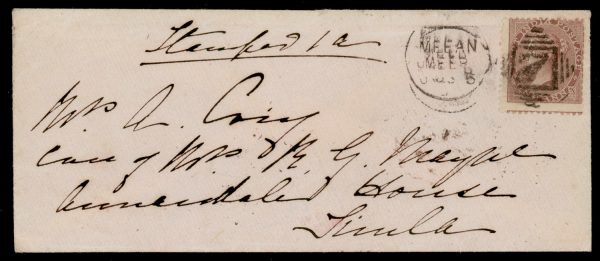 Stamped 1a
MEEAN
MEER
Mrs A. Cory
care of Mrs R. G. Mayne
Annandale House
Simla